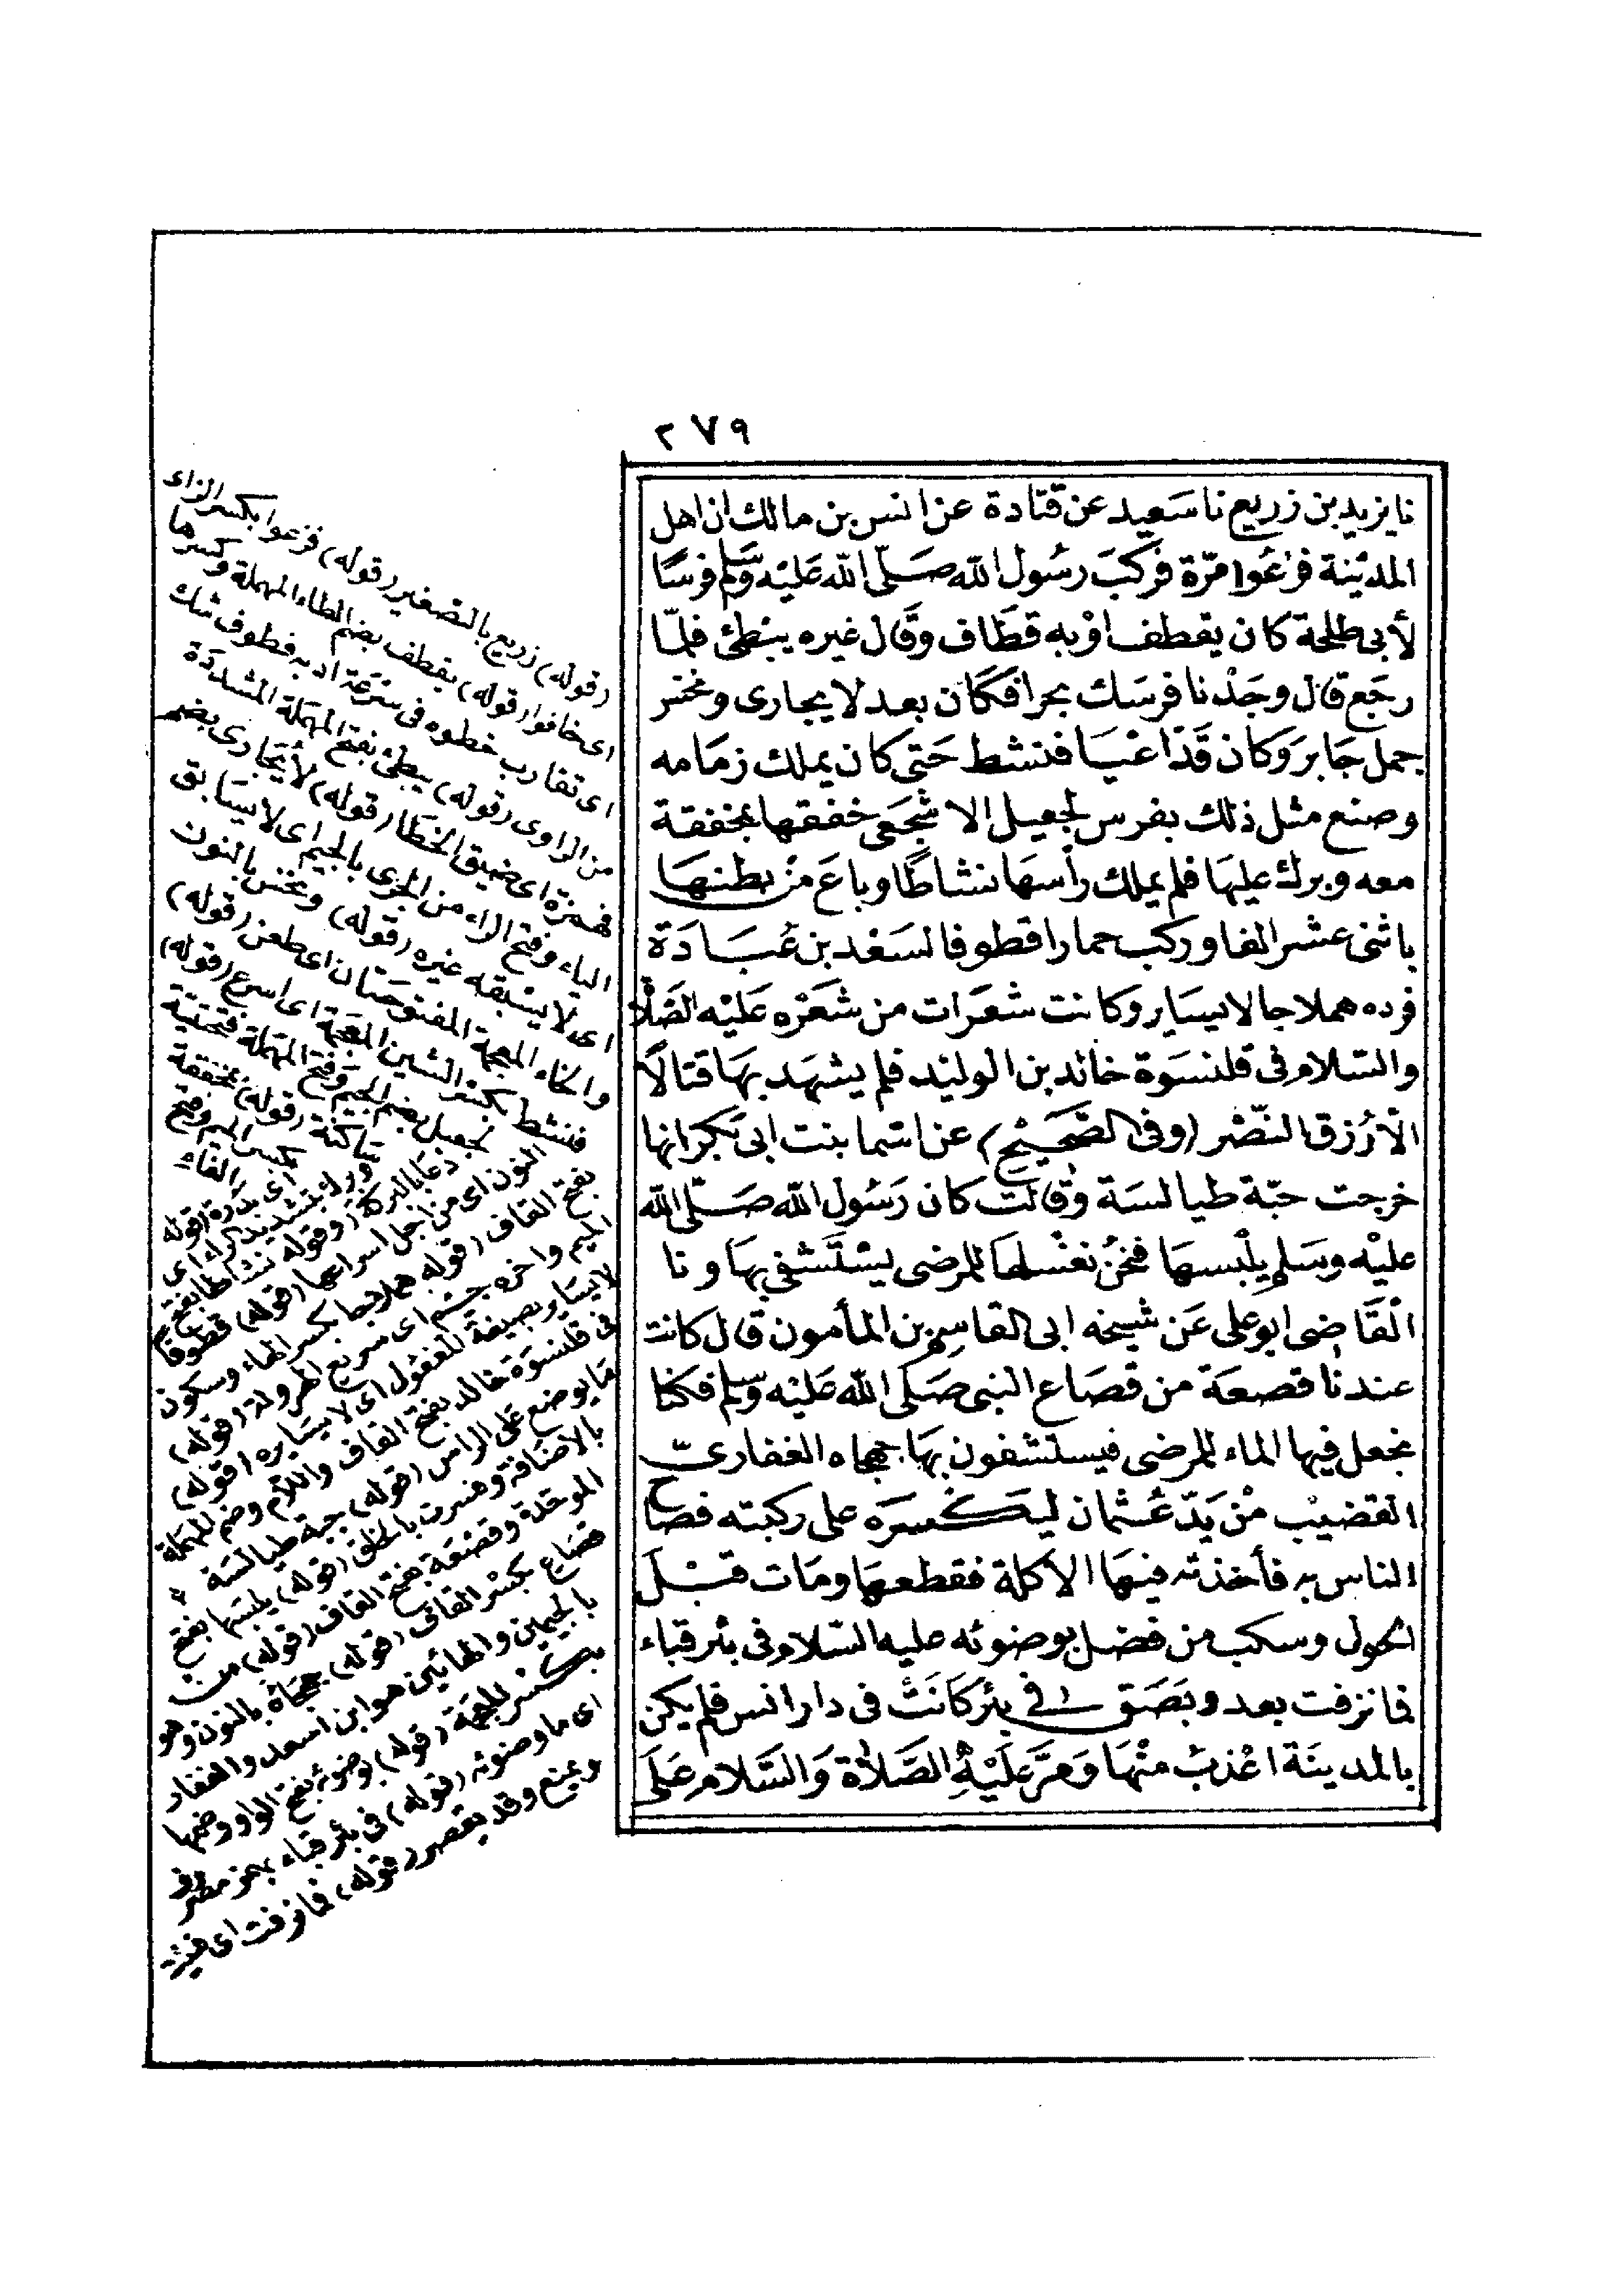 ٢٧٩
نا يزيد بن زريع نا سَعيد عن قتادة عن انس بن مالك ان اهل
المدينة فزعُوا مرّة فركبَ رسُول الله صَلّى الله عَليْه وَسَلم فرسًا
لأبى طلحة كان يقطف اوْ به قطَاف وقال غيره يبَطئ فلمّا
رجَع قال وجَدْنا فرسَك بحرا فكَان بعد لا يجارى ونخسَ
جمل جَابر وَكان قَدْ اعْيَا فنشط حَتى كان يملك زمَامه
وصنع مثل ذلك بفرس لجعيل الاشجَعى خفقها بمخفقة
معه وبرك عليهَا فلم يملك رأسهَا نشاطًا وباعَ منْ بطنهَا
باثنى عشر الفا وركب حمارا قطوفا لسَعْد بن عُبَادَة
فرده هملاجا لا يسَاير وكانت شعَرات من شعَرْه عَليْه الصَّلاة
والسّلام فى قلنسَوة خالد بن الوليْد فلم يشهَد بهَا قتالًا
الّا رُزق النّصْر (وفى الصَّحيْح) عن اسما بنت ابى بكر انها
خرجت جبّة طيالسَة وقالت كان رَسُول الله صَلّى الله
عليْه وسَلم يلْبسهَا فنحْن نغسْلهَا للمرضى يستَشفى بهَا ونا
الْقَاضى ابو على عَن شيخه ابى القاسم بن المأمون قال كانت
عندنا قصعَة من قصَاع النبى صَلى الله عَليْه وسلم فكنا
نجعل فيها الماء للمرضى فيستشفون بهَا وأخذ جهجاه الغفارىّ
القضيْب منْ يَد عُثمان ليكسرَه على ركبته فصَاح
الناس به فأخذته فيهَا الاكلة فقطعهَا ومَات قبْل
الحَول وسكب من فضل وضوئه عليه السّلام فى بئر قباء
فما نزفت بعد وبَصَق فى بئر كانَتْ فى دار انس فلم يكن
بالمدينَة اعْذبُ منْهَا وَمَرَّ عَليْهِ الصَّلاة وَالسَّلام عَلَى
(قوله) زريع بالتصغير (قوله) فزعوا بكسر الزاى
اى خافوا (قوله) يقطف بضم الطاء المهملة وكسرها
اى تقارب خطوه فى سرعة او به قطوف شك
من الراوى (قوله) يبطئ بفتح المهملة المشددة
فهمزة اى ضيق الخطا (قوله) لا يجارى بضم
الياء وفتح الراء من الجرى بالجيم اى لا يسَابق
اى لا يسْبقه غيره (قوله) ونخس بالنون
والخاء المعجمة المفتوحتان اى طعن (قوله)
فنشط بكسر الشين المعجمة اى اسرع (قوله)
لجعيل بضم الجيم وفتح المهملة فتحتية
ساكنة (قوله) بمخفقة
بكسر الميم وفتح
الفاء
اى بدرة (قوله
وبرك بتشديد الراء اى
دعا بالبركة (وقوله نشاطا بفتح
النون اى من اجل اسراعها (قوله) قطوفا
بفتح القاف (قوله هملاجا بكسر الهاء وسكون
الميم واخره جيم اى سريع الهرولة (قوله)
لا يساير بصيغة المفعول اى لا يسَايره (قوله)
فى قلنسوة خالد بفتح القاف واللام وضم المهملة
مَا يوضع عَلى الراس (قوله) جبة طيالسَة
بالاضافة وفسرت بالخلق (قوله) يلبسَها بفتح
الموحدة وقصْعَة بفتح القاف (قوله) من
قصَاع بكسْر القاف (قوله) جهجَاه بالنون وهو
بالجيمين والهائين هو ابن اسعد والغفار
بكسر المعجمة (قوله) وضوئه بفتح الواو وضمها
اى ماء وضوئه (قوله) فى بئر قباء بهمز مصروف
ويمنع وقد يقصر (قوله) فما نزفت اى